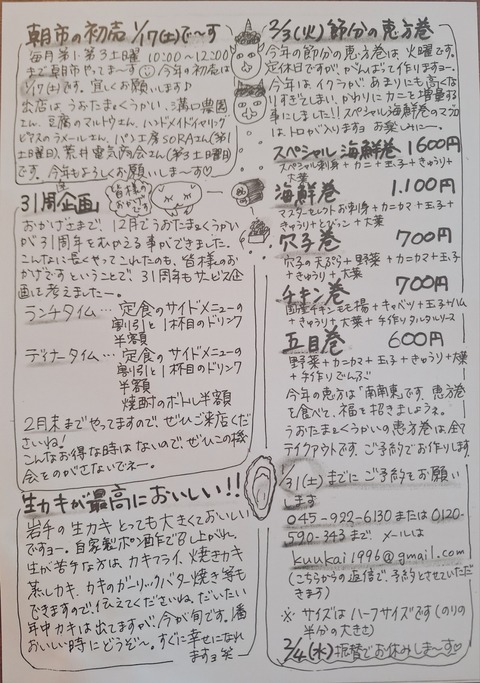 朝市の初売 1/17(土)で〜す
毎月第1·第3土曜 10:00〜12:00
まで朝市やってま〜す 今年の初売は
1/17(土)です。宜しくお願いします♪
出店はうおたま&くうかい、三溝口農園
さん、豆腐のマルトウさん、ハンドメイドイヤリング
ピアスのラメールさん、パン工房SORAさん(第1
土曜日)、荒井電気商会さん(第3土曜日)
です。今年もよろしくお願いしま〜す♡
31周企画」
皆様の
おかげです
おかげさまで、12月でうおたま&くうかい
が31周年をむかえる事ができました。
こんなに長くやってこれたのも、皆様のおか
げですということで、31周年もサービス企
画を考えましたー。
ランチタイム… 定食のサイドメニューの
割引と1杯目のドリンク
半額
ディナータイム… 定食のサイドメニューの
割引と1杯目のドリンク
半額
焼酎のボトル半額
2月末までやってますので、ぜひご来店くだ
さいね!
こんなお得な時はないので、ぜひこの機
会をのがさないでネー。
生カキが最高においしい!!
岩手の生カキとっても大きくておいしい
ですヨー。自家製ポン酢で召し上がれ。
生が苦手な方は、カキフライ、焼きカキ
蒸しカキ、カキのガーリックバター焼き等も
できますので、伝えてくださいね。だいたい
年中カキは出てますが、今が旬です。1番
おいしい時にどうぞ〜。すぐに幸せになれ
ますヨ 笑
2/3(火)節分の恵方巻
今年の節分の恵方巻は火曜です。
定休日ですが、がんばって作りますョー。
今年は、イクラがあまりにも高くな
りすぎてしまい、かわりにカニを増量する
事にしました!!スペシャル海鮮巻のマグロ
は、トロが入ります♪お楽しみにー。
スペシャル海鮮巻 1600円
スペシャル刺身+カニ+玉子+きゅうり+
大葉
海鮮巻 1.100円
マスターセレクトお刺身+カニカマ+玉子+
きゅうり+とびっこ+大葉
穴子巻 700円
穴子の天ぷら+野菜+カニカマ+玉子
+きゅうり+大葉
チキン巻 700円
国産チキンモモ揚+キャベツ+玉子+ハム
+きゅうり+大葉+手作りタルタルソース
五目巻 600円
野菜+カニカマ+玉子+きゅうり+大葉
+手作りでんぶ
今年の恵方は「南南東」です。恵方巻
を食べて、福を招きましょうネ。
うおたま&くうかいの恵方巻は、全て
テイクアウトです。ご予約でお作りします。
1/31(土)までにご予約をお願い
します
045-922-6130または0120-
590-343まで。メールは
kuukai1996@gmail.com
(こちらからの返信で、予約とさせていただ
きます)
※ サイズはハーフサイズです(のりの
半分の大きさ)
2/4(水)振替でお休みしま〜す♡